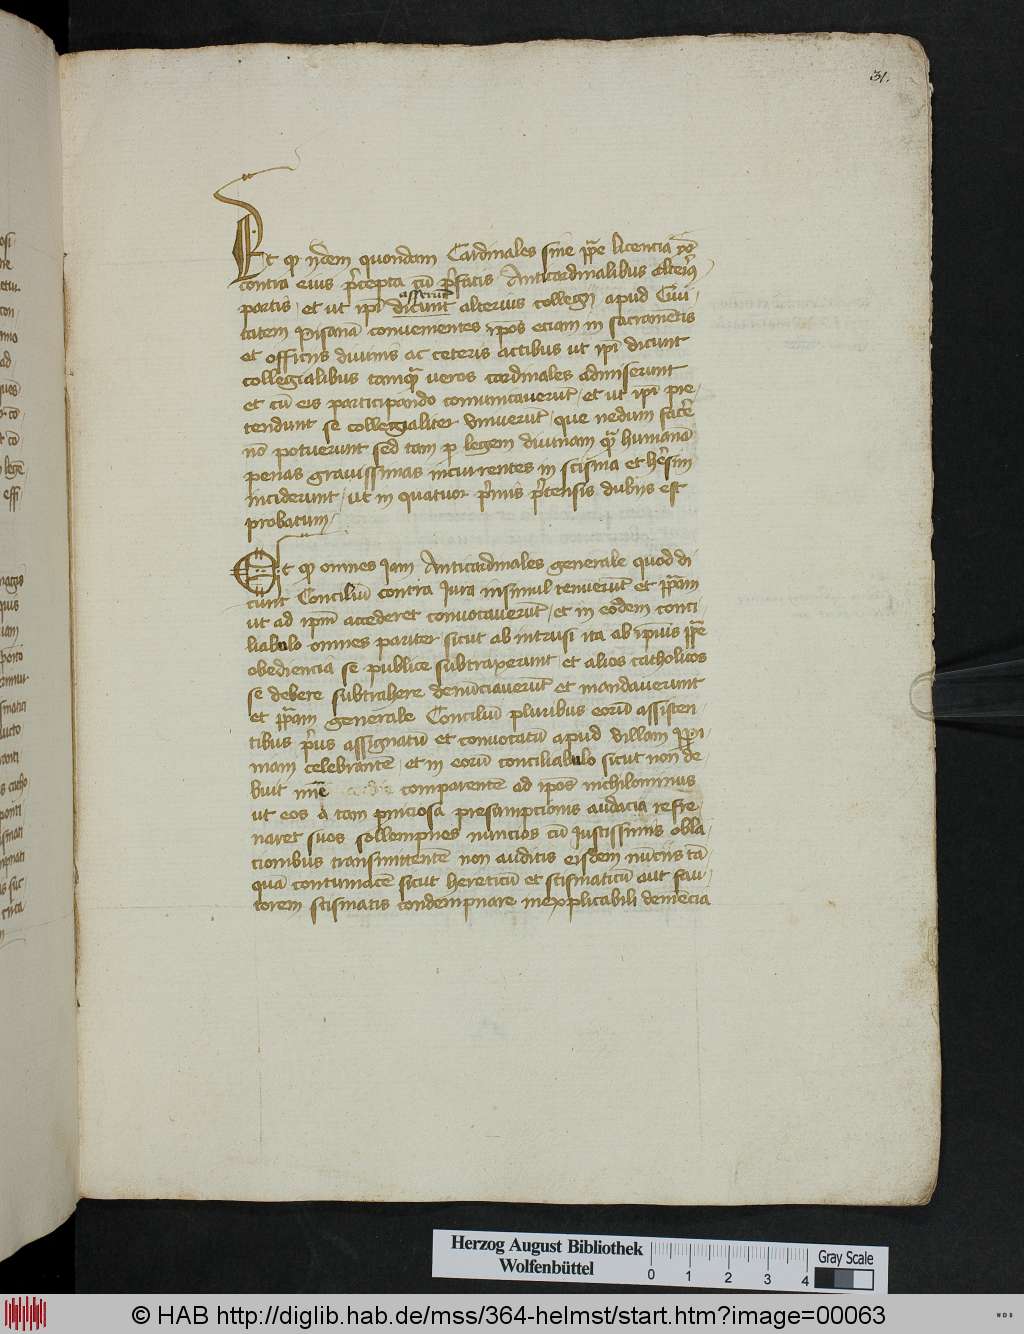 31.
Et qꝫ ijdem quondam Cardinales sine pp̄e licencia ymo
contra eius p̄cepta cū p̄fatis Anticardinalibus alterius
partis et ut ipī dicunt alterius collegij apud Ciui
asserunt
tatem Pisanā conuenientes ipos eciam in sacramētis
et officijs diuinis ac ceteris actibus ut ipī dicunt
collegialibus tamqꝫ veros cardinales admiserunt
et cū eis participando cōmunicauerūt et ut ipī pre
tendunt se collegialiter vniuerūt que nedum facere
nō potuerunt sed tam p legem diuinam qꝫ humanā
penas grauissimas incurrentes in scisma et hēsim
inciderunt ut in quatuor p̄mis p̄tensis dubijs est
probatum
Et qꝫ omnes iam Anticardinales generale quod di
cunt Conciliū contra iura insimul tenuerūt et pp̄am
ut ad ipm̄ accederet conuocauerūt et in eōdem conci
liabulo omnes pariter sicut ab intrusi ita ab ipius pp̄e
obediencia se publice subtraxerunt et alios catholicos
se debere subtrahere denūciauerūt et mandauerunt
et pp̄am generale Conciliū pluribus eorū assisten
tibus p̄us assignatū et conuocatū apud villam pp̄i
niani celebrantē et in eorū conciliabulo sicut non de
buit comparentē ad ipos nichilominus
ut eos a tam pniciosa presumpcionis audacia refre
naret suos sollompnes nuncios cū iustissimis obla
cionibus transmittentē non auditis eisdem nūcijs tā
quā contumacē sicut hereticū et scismaticū aut fau
torem scismatis condempnare inexplicabili demēcia
Herzog August Bibliothek
Wolfenbüttel
0 1 2 3 4
Gray Scale
© HAB http://diglib.hab.de/mss/364-helmst/start.htm?image=00063